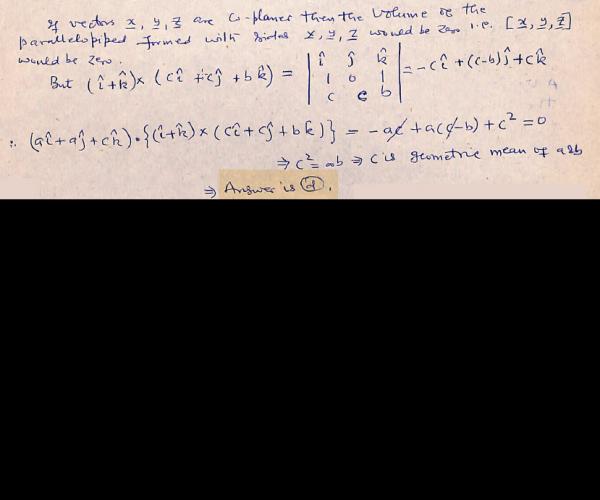 If vectors x, y, z are co-planer then the volume of the
parallelopiped formed with sides x, y, z would be zero i.e. [x, y, z]
would be zero.
But (î+k̂)×(cî+cĵ+bk̂) = | î ĵ k̂ | = -cî+(c-b)ĵ+ck̂
| 1 0 1 |
| c c b |
∴ (aî+aĵ+ck̂)·{(î+k̂)×(cî+cĵ+bk̂)} = -ac+a(c-b)+c²=0
⇒ c²=ab ⇒ c is geometric mean of a&b
⇒ Answer is d.